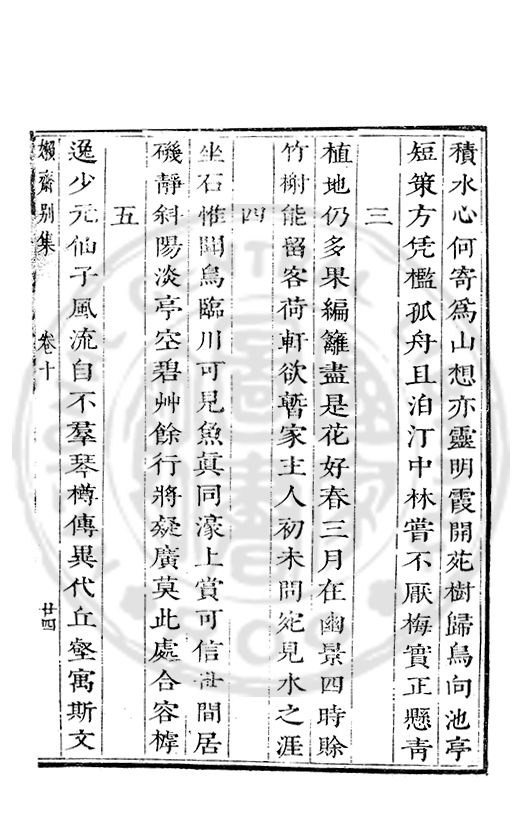 積水心何寄為山想亦靈明霞開苑樹歸鳥向池亭
短策方凭檻孤舟且泊汀中林嘗不厭梅實正懸青
三
植地仍多果編籬盡是花好春三月在幽景四時賒
竹榭能留客荷軒欲暫家主人初未問宛見水之涯
四
坐石惟聞鳥臨川可見魚眞同濠上賞可信世間居
磯靜斜陽淡亭空碧艸餘行將疑廣莫此處合容樗
五
逸少元仙子風流自不羣琴樽傳異代丘壑寓斯文
嬾齋別集
卷十
廿四